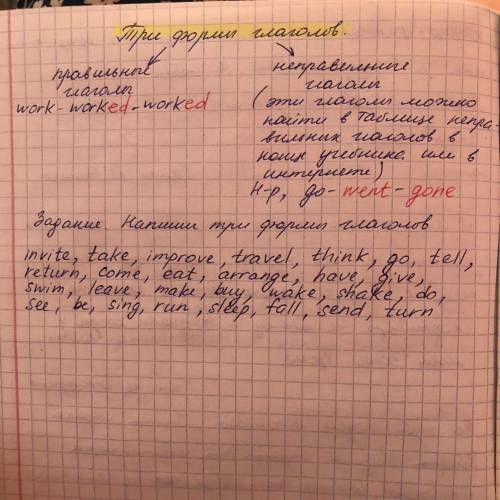 Три формы глаголов.
правильные
глаголы
work - worked - worked
неправильные
глаголы
(эти глаголы можно
найти в таблице непра-
вильных глаголов в
конце учебника или в
интернете)
Н-р, go - went - gone
Задание Напиши три формы глаголов
invite, take, improve, travel, think, go, tell,
return, come, eat, arrange, have, give,
swim, leave, make, buy, wake, shake, do,
see, be, sing, run, sleep, fall, send, turn